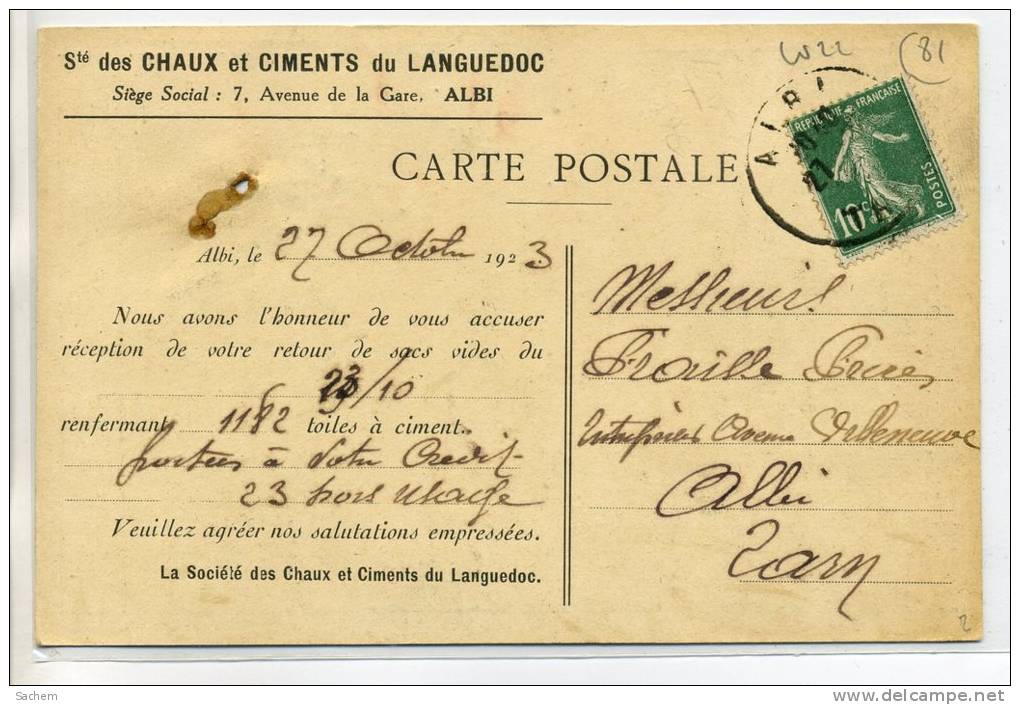 Sté des CHAUX et CIMENTS du LANGUEDOC
Siège Social : 7, Avenue de la Gare, ALBI
W22
81
ALBI
27
REPUBLIQUE FRANÇAISE
POSTES
10c
CARTE POSTALE
Albi, le 27 Octobre 1923
Nous avons l'honneur de vous accuser
réception de votre retour de sacs vides du
23/10
renfermant 1182 toiles à ciment.
portées à Votre Crédit
23 hors usage
Veuillez agréer nos salutations empressées.
La Société des Chaux et Ciments du Languedoc.
Messieurs
Fraisse Frères
Avenue Villeneuve
Albi
Tarn
2
Sachem
www.delcampe.net